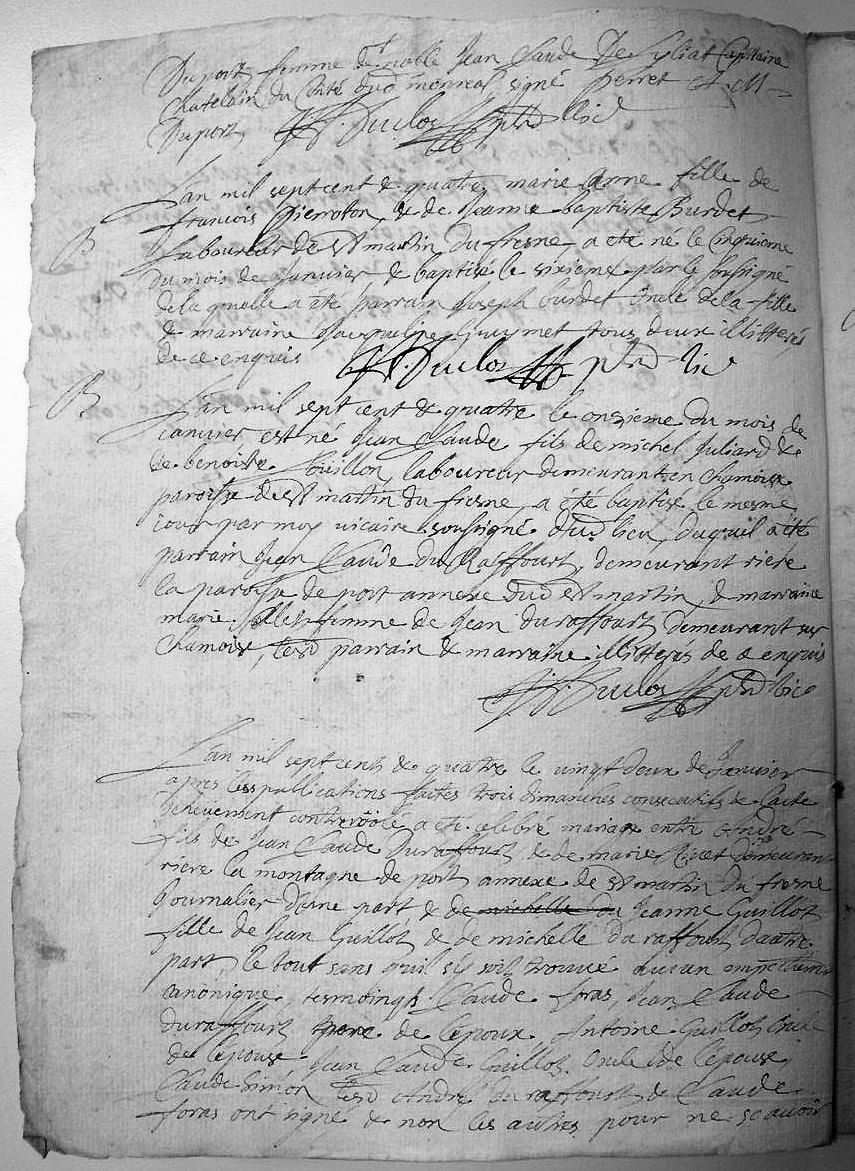 Duport femme de noble Jean Claude De Syliat Capitaine
Chatelain du Conté dud monreal signé Perret A. M
Duport J F. Duclos ptre Vic
Lan mil sept cent & quatre marie Anne fille de
francois Pierroton & de Jeanne baptiste Burdet
B Laboureur de st martin du fresne a été né le Cinquieme
du mois de Janvier & baptisé le sixieme par le soussigné
de la quelle a été parrain Joseph burdet Oncle de la fille
& marraine Jacqueline Guymet tous deux illitteres
de ce enquis J F. Duclos ptre Vic
B Lan mil sept cent & quatre le onzieme du mois de
ianvier est né Jean Claude fils de michel Juliard &
de benoiste Louillon laboureur demeurant en Chamoise
paroisse de st martin du fresne, a été baptisé le mesme
iour par moy vicaire soussigné dud lieu, duquil a été
parrain Jean Claude Du Raffourt, demeurant riere
la paroisse de port annexe dud st martin, & marraine
marie femme de Jean duraffourt demeurant sur
Chamoise, lesd parrain & marraine illitteres de ce enquis
J F. Duclos ptre Vic
Lan mil sept cents & quatre le vingt deux de Janvier
apres les publications faites trois dimanches consecutifs & lacte
controollé a été celebré mariage entre André
fils de Jean Claude Duraffourt & de marie demeurant
riere la montagne de port annexe de st martin du fresne
Journalier dune part & de michelle du Jeanne Guillot
fille de Jean Guillot & de michelle du raffourt dautre
part, le tout sans quil sy soit trouvé aucun empechement
canonique, tesmoings Claude foras, Jean Claude
duraffourt frere de lepoux Antoine Guillot Oncle
de lepouse Jean Claude Guillot Oncle de lepouse
Claude Simon lesd André Duraffourt & Claude
foras ont signé & non les autres pour ne scavoir